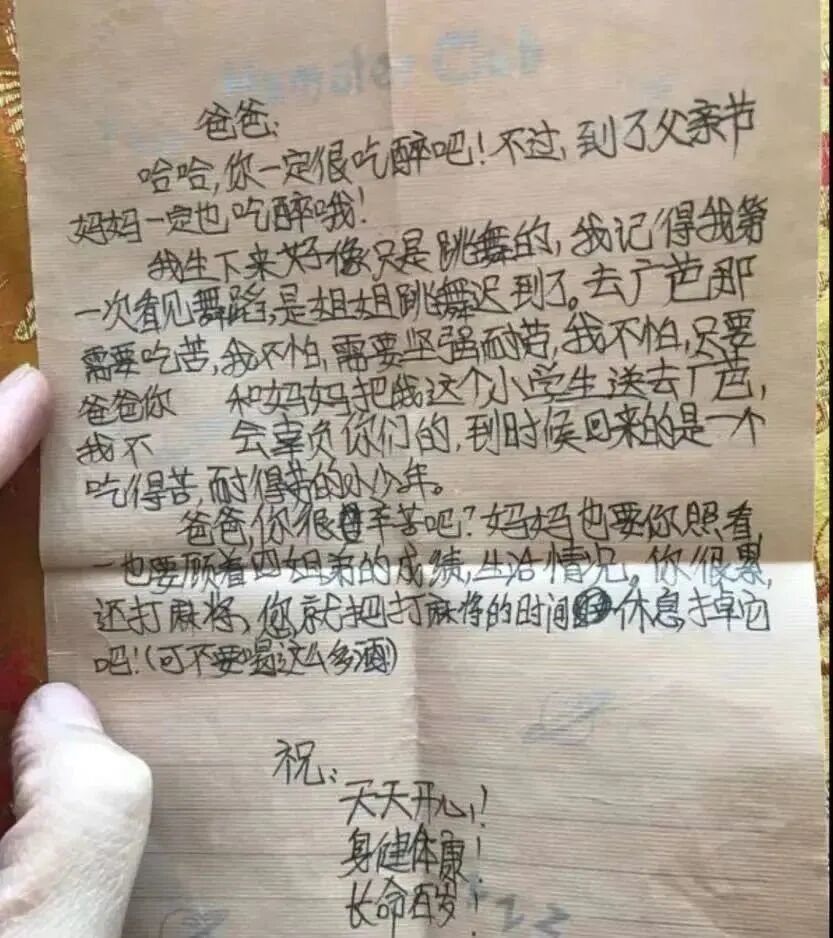 Hamster Club
爸爸:
哈哈,你一定很吃醉吧!不过,到了父亲节
妈妈一定也吃醉哦!
我生下来好像只是跳舞的,我记得我第
一次看见舞蹈,是姐姐跳舞迟到了。去广芭那
需要吃苦,我不怕,需要坚强耐劳,我不怕,只要
爸爸你 和妈妈把我这个小学生送去广芭,
我不 会辜负你们的,到时候回来的是一个
吃得苦,耐得劳的小少年。
爸爸,你很辛苦吧?妈妈也要你照看,
也要顾着四姐弟的成绩,生活情况。你很累,
还打麻将,您就把打麻将的时间休息掉它
吧!(可不要喝这么多酒!)
祝:
天天开心!
身健体康!
长命百岁!